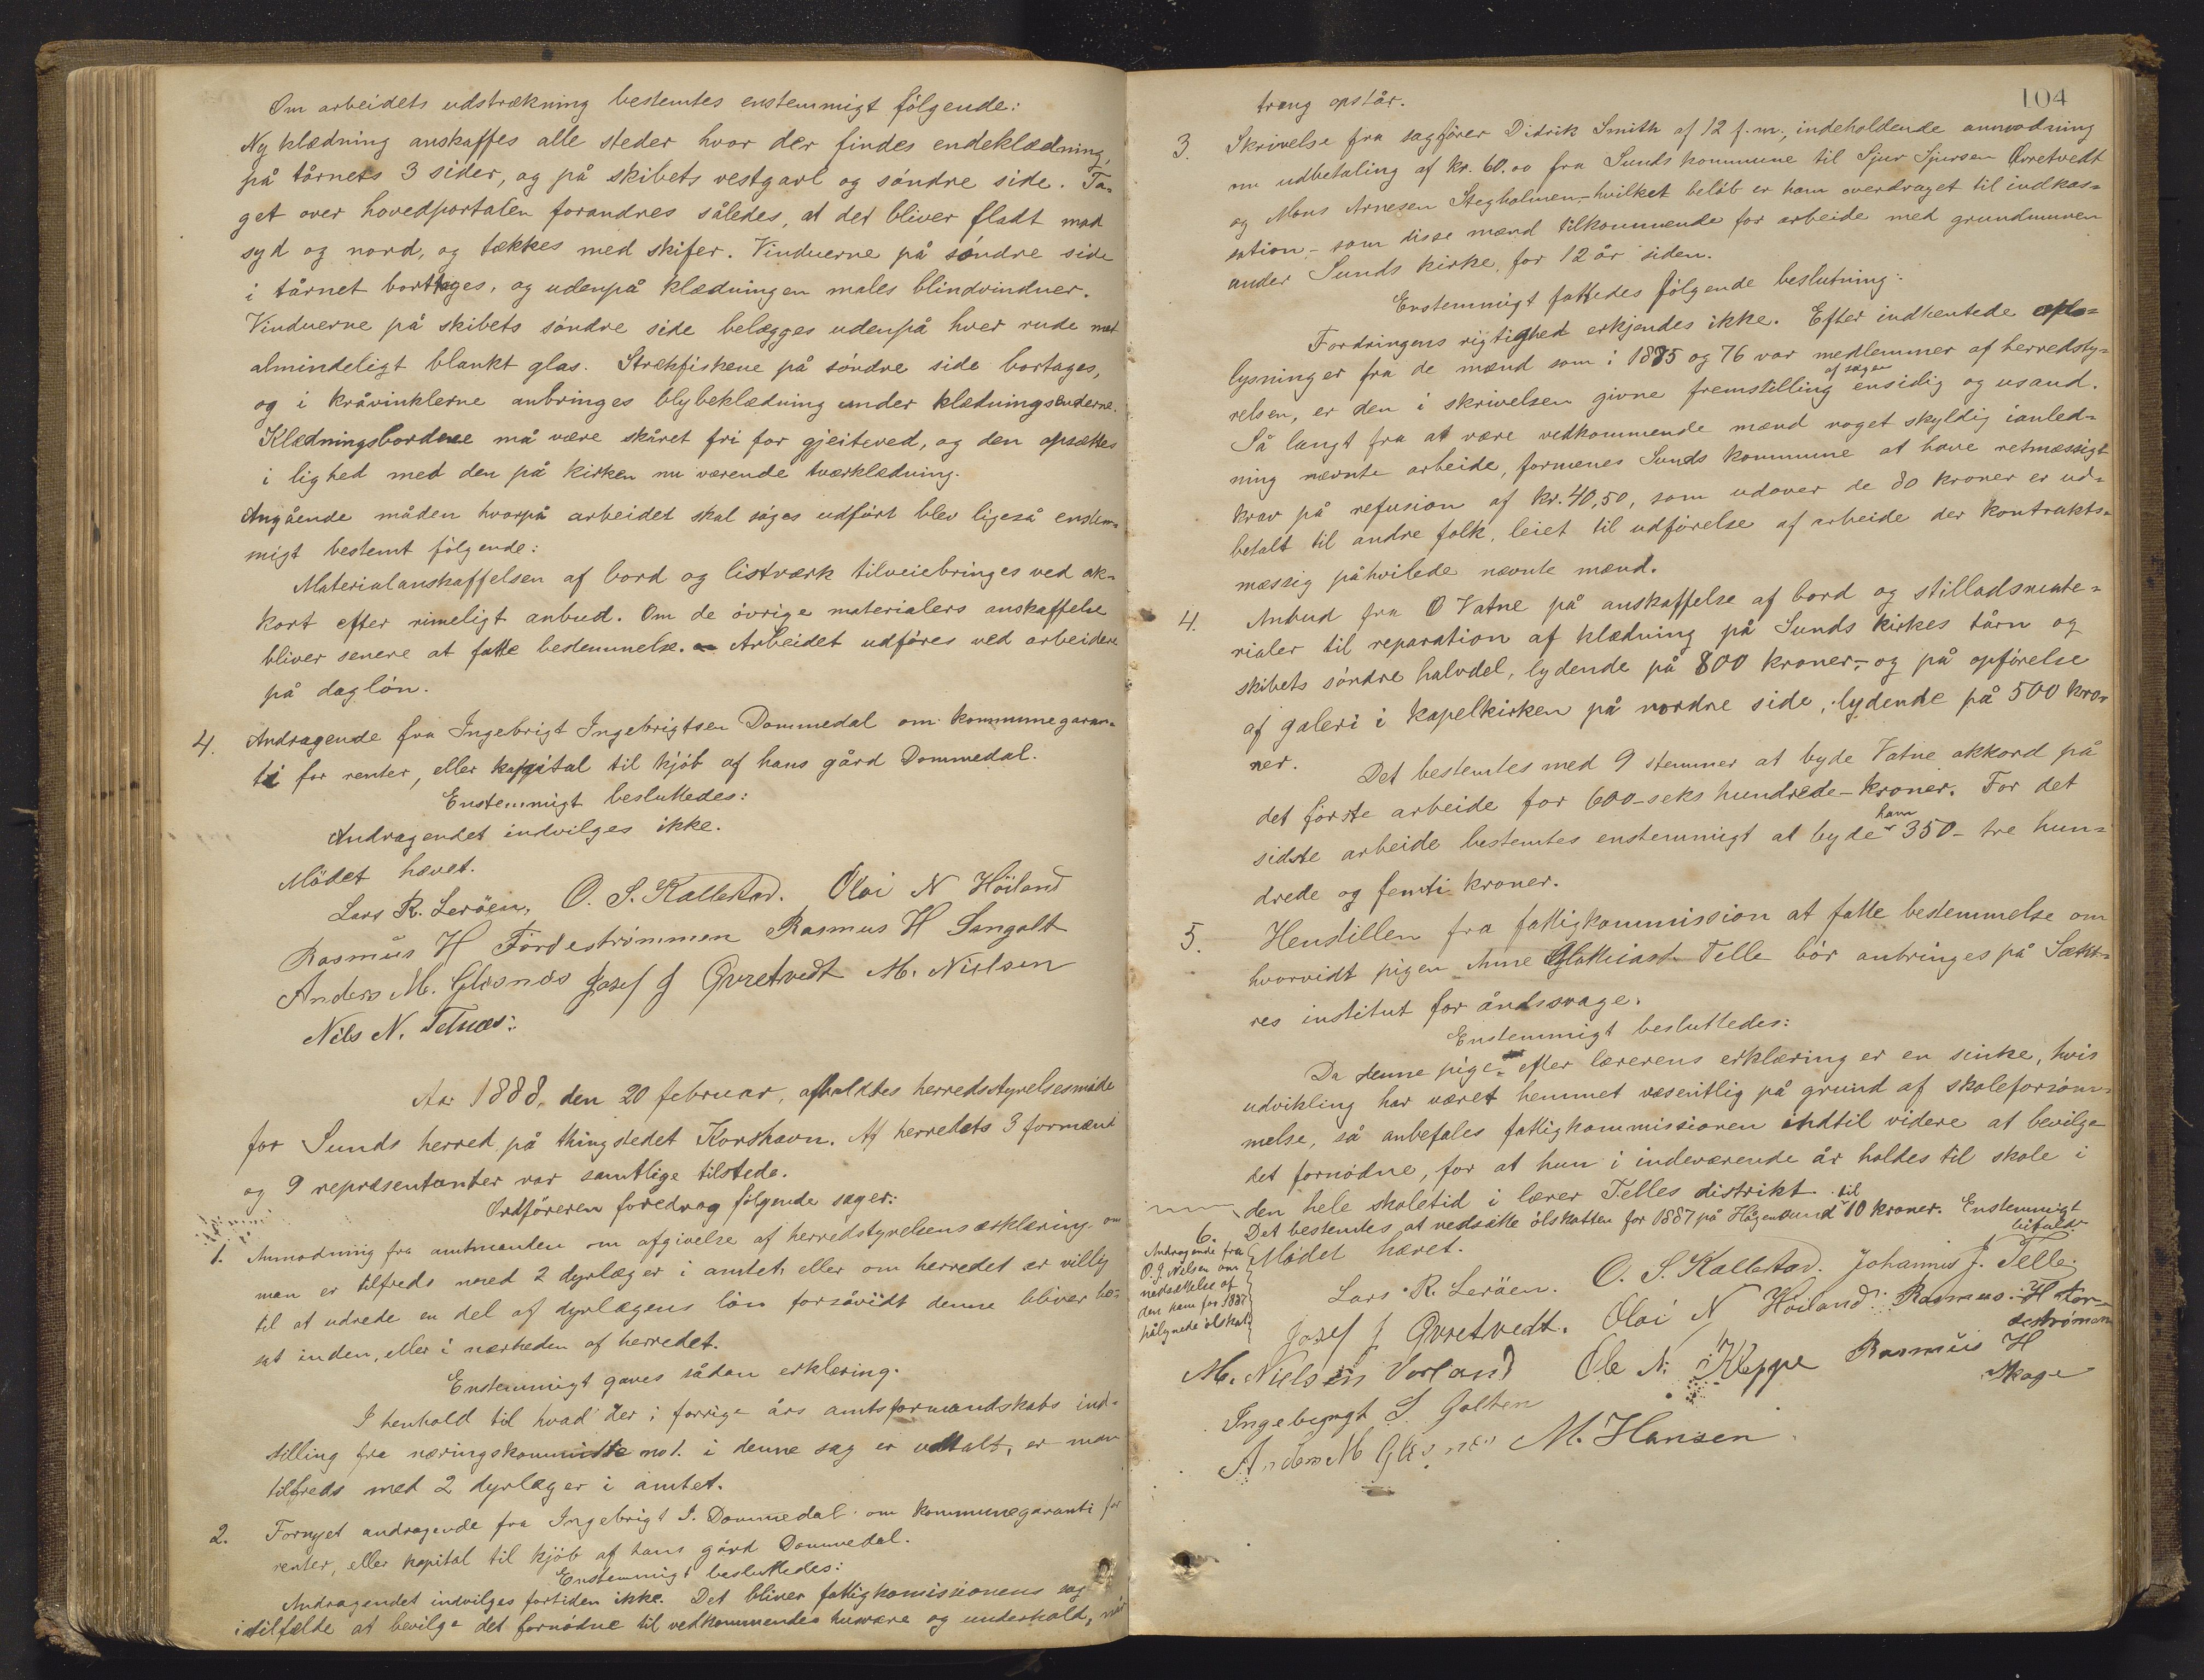 Om arbeidets udstrækning bestemtes enstemmigt følgende:
Ny klædning anskaffes alle steder hvor der findes endeklædning,
på tårnets 3 sider, og på skibets vestgavl og søndre side. Ta-
get over hovedportalen forandres således, at det bliver fladt mod
syd og nord, og tækkes med skifer. Vinduerne på søndre side
i tårnet borttages, og udenpå klædningen males blindvinduer.
Vinduerne på skibets søndre side belægges udenpå hver rude med
almindeligt blankt glas. Strækfiskene på søndre side bortages,
og i kråvinklerne anbringes blybeklædning under klædningsenderne.
Klædningsbordene må være skåret fri for gjeiteved, og den opsættes
i lighed med den på kirken nu værende tværklædning.
Angående måden hvorpå arbeidet skal søges udført blev ligeså enstem-
migt bestemt følgende:
Materialanskaffelsen af bord og listværk tilveiebringes ved ak-
kort efter rimeligt anbud. Om de øvrige materialers anskaffelse
bliver senere at fatte bestemmelse. Arbeidet udføres ved arbeidere
på dagløn.
4. Andragende fra Ingebrigt Ingebrigtsen Dommedal om kommunegaran-
ti for renter, eller kapital til kjøb af hans gård Dommedal.
Enstemmigt besluttedes:
Andragendet indvilges ikke.
Mødet hævet.
Lars R. Lerøen, O. S. Kallestad. Oloi N Høiland
Rasmus H Førdestrømmen Rasmus H Sangolt
Anders M. Glesnæs Josef J Qvretvedt M. Nielsen
Nils N. Telnæs:
Aar 1888, den 20 februar, afholdtes herredsstyrelsesmøde
for Sunds herred på thingstedet Korshavn. Af herredets 3 formænd
og 9 repræsentanter var samtlige tilstede.
Ordføreren foredrog følgende sager:
1. Anmodning fra amtmanden om afgivelse af herredstyrelsens erklæring om
man er tilfreds med 2 dyrlæger i amtet, eller om herredet er villig
til at udrede en del af dyrlægens løn forsåvidt denne bliver bo-
sat inden, eller i nærheden af herredet.
Enstemmigt gaves sådan erklæring.
I henhold til hvad der i forrige års amtsformandskabs ind-
stilling fra næringskommitte no 1. i denne sag er udtalt, er man
tilfreds med 2 dyrlæger i amtet.
2. Fornyet andragende fra Ingebrigt I. Dommedal om kommunegaranti for
renter, eller kapital til kjøb af hans gård Dommedal.
Enstemmigt besluttedes:
Andragendet indvilges fortiden ikke. Det bliver fattigkomissionens sag
i tilfælde at bevilge det fornødne til vedkommendes husvære og underhold, når
104
trang opstår.
3. Skrivelse fra sagfører Didrik Smith af 12 f. m., indeholdende anmodning
om udbetaling af kr. 60.00 fra Sunds kommune til Sjur Sjursen Qvretvedt
og Mons Arnesen Stegholmen, - hvilket beløb er ham overdraget til indkas-
sation, - som disse mænd tilkommende for arbeide med grundmuren
under Sunds kirke, for 12 år siden.
Enstemmigt fattedes følgende beslutning:
Fordringens rigtighed erkjendes ikke. Efter indhentede oplø-
lysninger fra de mænd som i 1875 og 76 var medlemmer af herredsty-
relsen, er den i skrivelsen givne fremstilling af sagen ensidig og usand.
Så langt fra at være vedkommende mænd noget skyldig ianled-
ning nævnte arbeide, formenes Sunds kommune at have retmæssigt
krav på refusion af kr. 40,50, som udover de 80 kroner er ud-
betalt til andre folk, leiet til udførelse af arbeide der kontrakts-
mæssig påhvilede nævnte mænd.
4. Anbud fra O Vatne på anskaffelse af bord og stilladsmate-
rialer til reparation af klædning på Sunds kirkes tårn og
skibets søndre halvdel, lydende på 800 kroner, - og på opførelse
af galeri i kapelkirken på nordre side, lydende på 500 kro-
ner.
Det bestemtes med 9 stemmer at byde Vatne akkord på
det første arbeide for 600 - seks hundrede - kroner. For det
sidste arbeide bestemtes enstemmigt at byde ham 350 - tre hun-
drede og femti kroner.
5. Henstillen fra fattigkommission at fatte bestemmelse om
hvorvidt pigen Anne Telle bør anbringes på Sæth-
res institut for åndssvage.
Enstemmigt besluttedes:
Da denne pige efter lærerens erklæring er en sinke, hvis
udvikling har været hemmet væsentlig på grund af skoleforsøm-
melse, så anbefales fattigkommissionen indtil videre at bevilge
det fornødne, for at hun i indeværende år holdes til skole i
den hele skoletid i lærer Telles distrikt.
6. Det bestemtes at nedsætte ølskatten for 1887 på Hågensund til 10 kroner. Enstemmigt
bifaldt
Andragende fra
O. J. Nilsen om
nedsættelse af
den ham for 1887
pålignede ølskat
Mødet hævet.
Lars R. Lerøen. O. S. Kallestad. Johannis J. Telle.
Josef J Qvretvedt. Oloi N Høiland. Rasmus H För-
destrømmen
M. Nielsen Vorland Ole N. Kleppe Rasmus H
Skoge
Ingebrigt S. Golten
Anders M Glesnæs M. Hansen